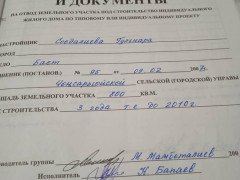 И ДОКУМЕНТЫ
НА ОТВОД ЗЕМЕЛЬНОГО УЧАСТКА ПОД СТРОИТЕЛЬСТВО ИНДИВИДУАЛЬНОГО
ЖИЛОГО ДОМА ПО ТИПОВОМУ ИЛИ ИНДИВИДУАЛЬНОМУ ПРОЕКТУ
СТРОЙЩИК Гульнара
(ПОСТАНОВ.) № 26 от 09.02
СЕЛЬСКОЙ (ГОРОДСКОЙ) УПРАВЫ
ЗЕМЕЛЬНОГО УЧАСТКА 800 КВ.М.
СТРОИТЕЛЬСТВА 3 года т.е до 2010 г.
водитель группы М. Мамбеталиев
Исполнитель К. Бапаев